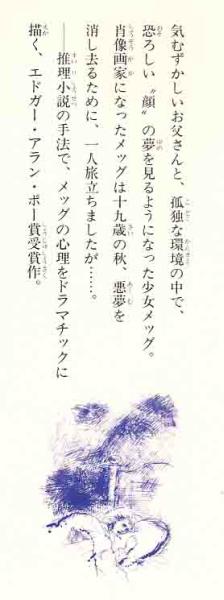 気むずかしいお父さんと、孤独な環境の中で、
恐ろしい〝顔〟の夢を見るようになった少女メッグ。
肖像画家になったメッグは十九歳の秋、悪夢を
消し去るために、一人旅立ちましたが……。
——推理小説の手法で、メッグの心理をドラマチックに
描く、エドガー・アラン・ポー賞受賞作。